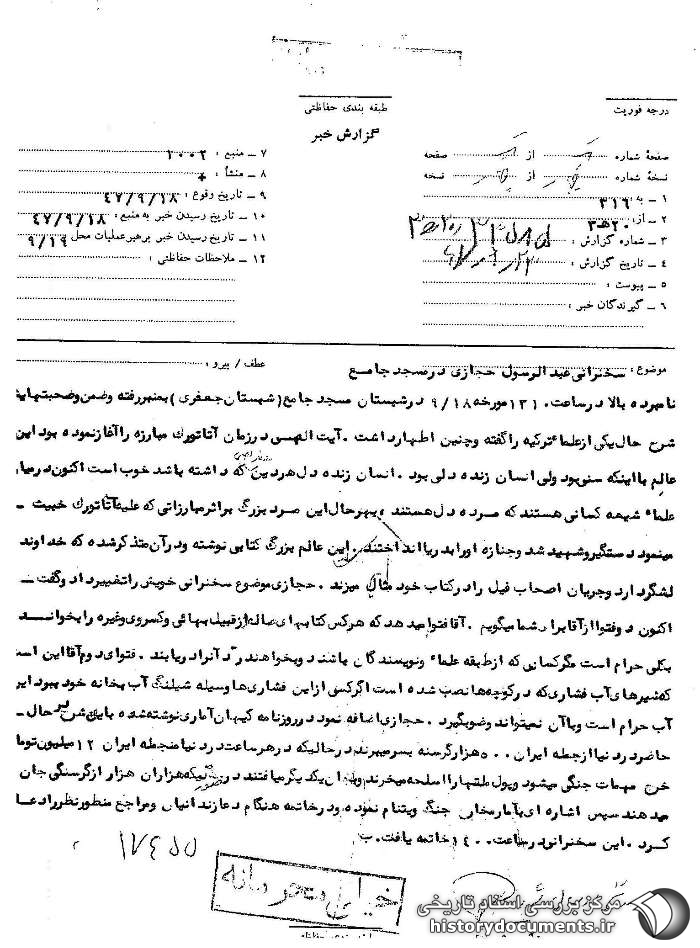 طبقه بندی حفاظتی
درجه فوریت
گزارش خبر
صفحهٔ شماره از صفحه
نسخهٔ شماره از نسخه
۱ ــ به ۳۱۶
۲ ــ از: ۲۰ ه‍ ۳
۳ ــ شماره گزارش :
۴ ــ تاریخ گزارش :
۵ ــ پیوست :
۶ ــ گیرندگان خبر :
۷ ــ منبع : ۱۰۰۲
۸ ــ منشأ :
۹ ــ تاریخ وقوع : ۴۷/۹/۱۸
۱۰ ــ تاریخ رسیدن خبر به منبع : ۴۷/۹/۱۸
۱۱ ــ تاریخ رسیدن خبر برهبر عملیات محل ۹/۱۹
۱۲ ــ ملاحظات حفاظتی :
موضوع : سخنرانی عبدالرسول حجازی درمسجد جامع عطف / پیرو :
نامبرده بالا درساعت ۱۳۱۰ مورخه ۹/۱۸ درشبستان مسجد جامع (شبستان جعفری) بمنبررفته وضمن وصحبتهایش
شرح حال یکی ازعلماء ترکیه راگفته وچنین اظهارداشت . آیت الهسی درزمان آتاتورک مبارزه راآغازنموده بود این
عالم بااینکه سنی بود ولی انسان زنده دلی بود . انسان زنده دل هردین که داشته باشد خوب است اکنون درمیان
علماء شیعه کسانی هستندکه مرده دل هستند ، بهرحال این مرد بزرگ براثرمبارزاتی که علیه آتاتورک خبیث ــ
مینمود دستگیروشهید شد وجنازه اورابدریااند اختند . این عالم بزرگ کتابی نوشته ودرآن متذکرشده که خداوند
لشگردارد وجریان اصحاب فیل رادرکتاب خود مثال میزند . حجازی موضوع سخنرانی خویش راتغییرداد وگفت ــ
اکنون دوفتواازآقابرای شمامیگویم . آقافتوامیدهد که هرکس کتابهای ضاله ازقبیل بهائی وکسروی وغیره رابخواند
بکلی حرام است مگرکسانی که ازطبقه علماء ونویسندگان باشند وبخواهند رد آنرادریابند . فتوای دوم آقااین است
که شیرهای آب فشاری که درکوچه هانصب شده است اگرکسی ازاین فشاری هاوسیله شیلنگ آب بخانه خود ببرد این
آب حرام است وباآن نمیتواند وضوبگیرد . حجازی اضافه نمود درروزنامه کیهان آماری نوشته شده باین شرح که درحال ــ
حاضردردنیاازجمله ایران ۵۰۰ هزارگرسنه بسرمیبرند درحالیکه درهرساعت دردنیامنجمله ایران ۱۲ میلیون تومان
خرج مهمات جنگی میشود وپول ملتهارااسلحه میخرند وبجان یکدیگرمیافتند درصورتیکه هزاران هزار ازگرسنگی جان
میدهند سپس اشاره ای بآمارمخارج جنگ ویتنام نموده ودرخاتمه هنگام دعازندانیان ومراجع منظورنظررادعا
کرد . این سخنرانی درساعت ۱۴۰۰ خاتمه یافت . ب
۱۷۴۵۵
خیلی محرمانه
مرکز بررسی اسناد تاریخی
historydocuments.ir